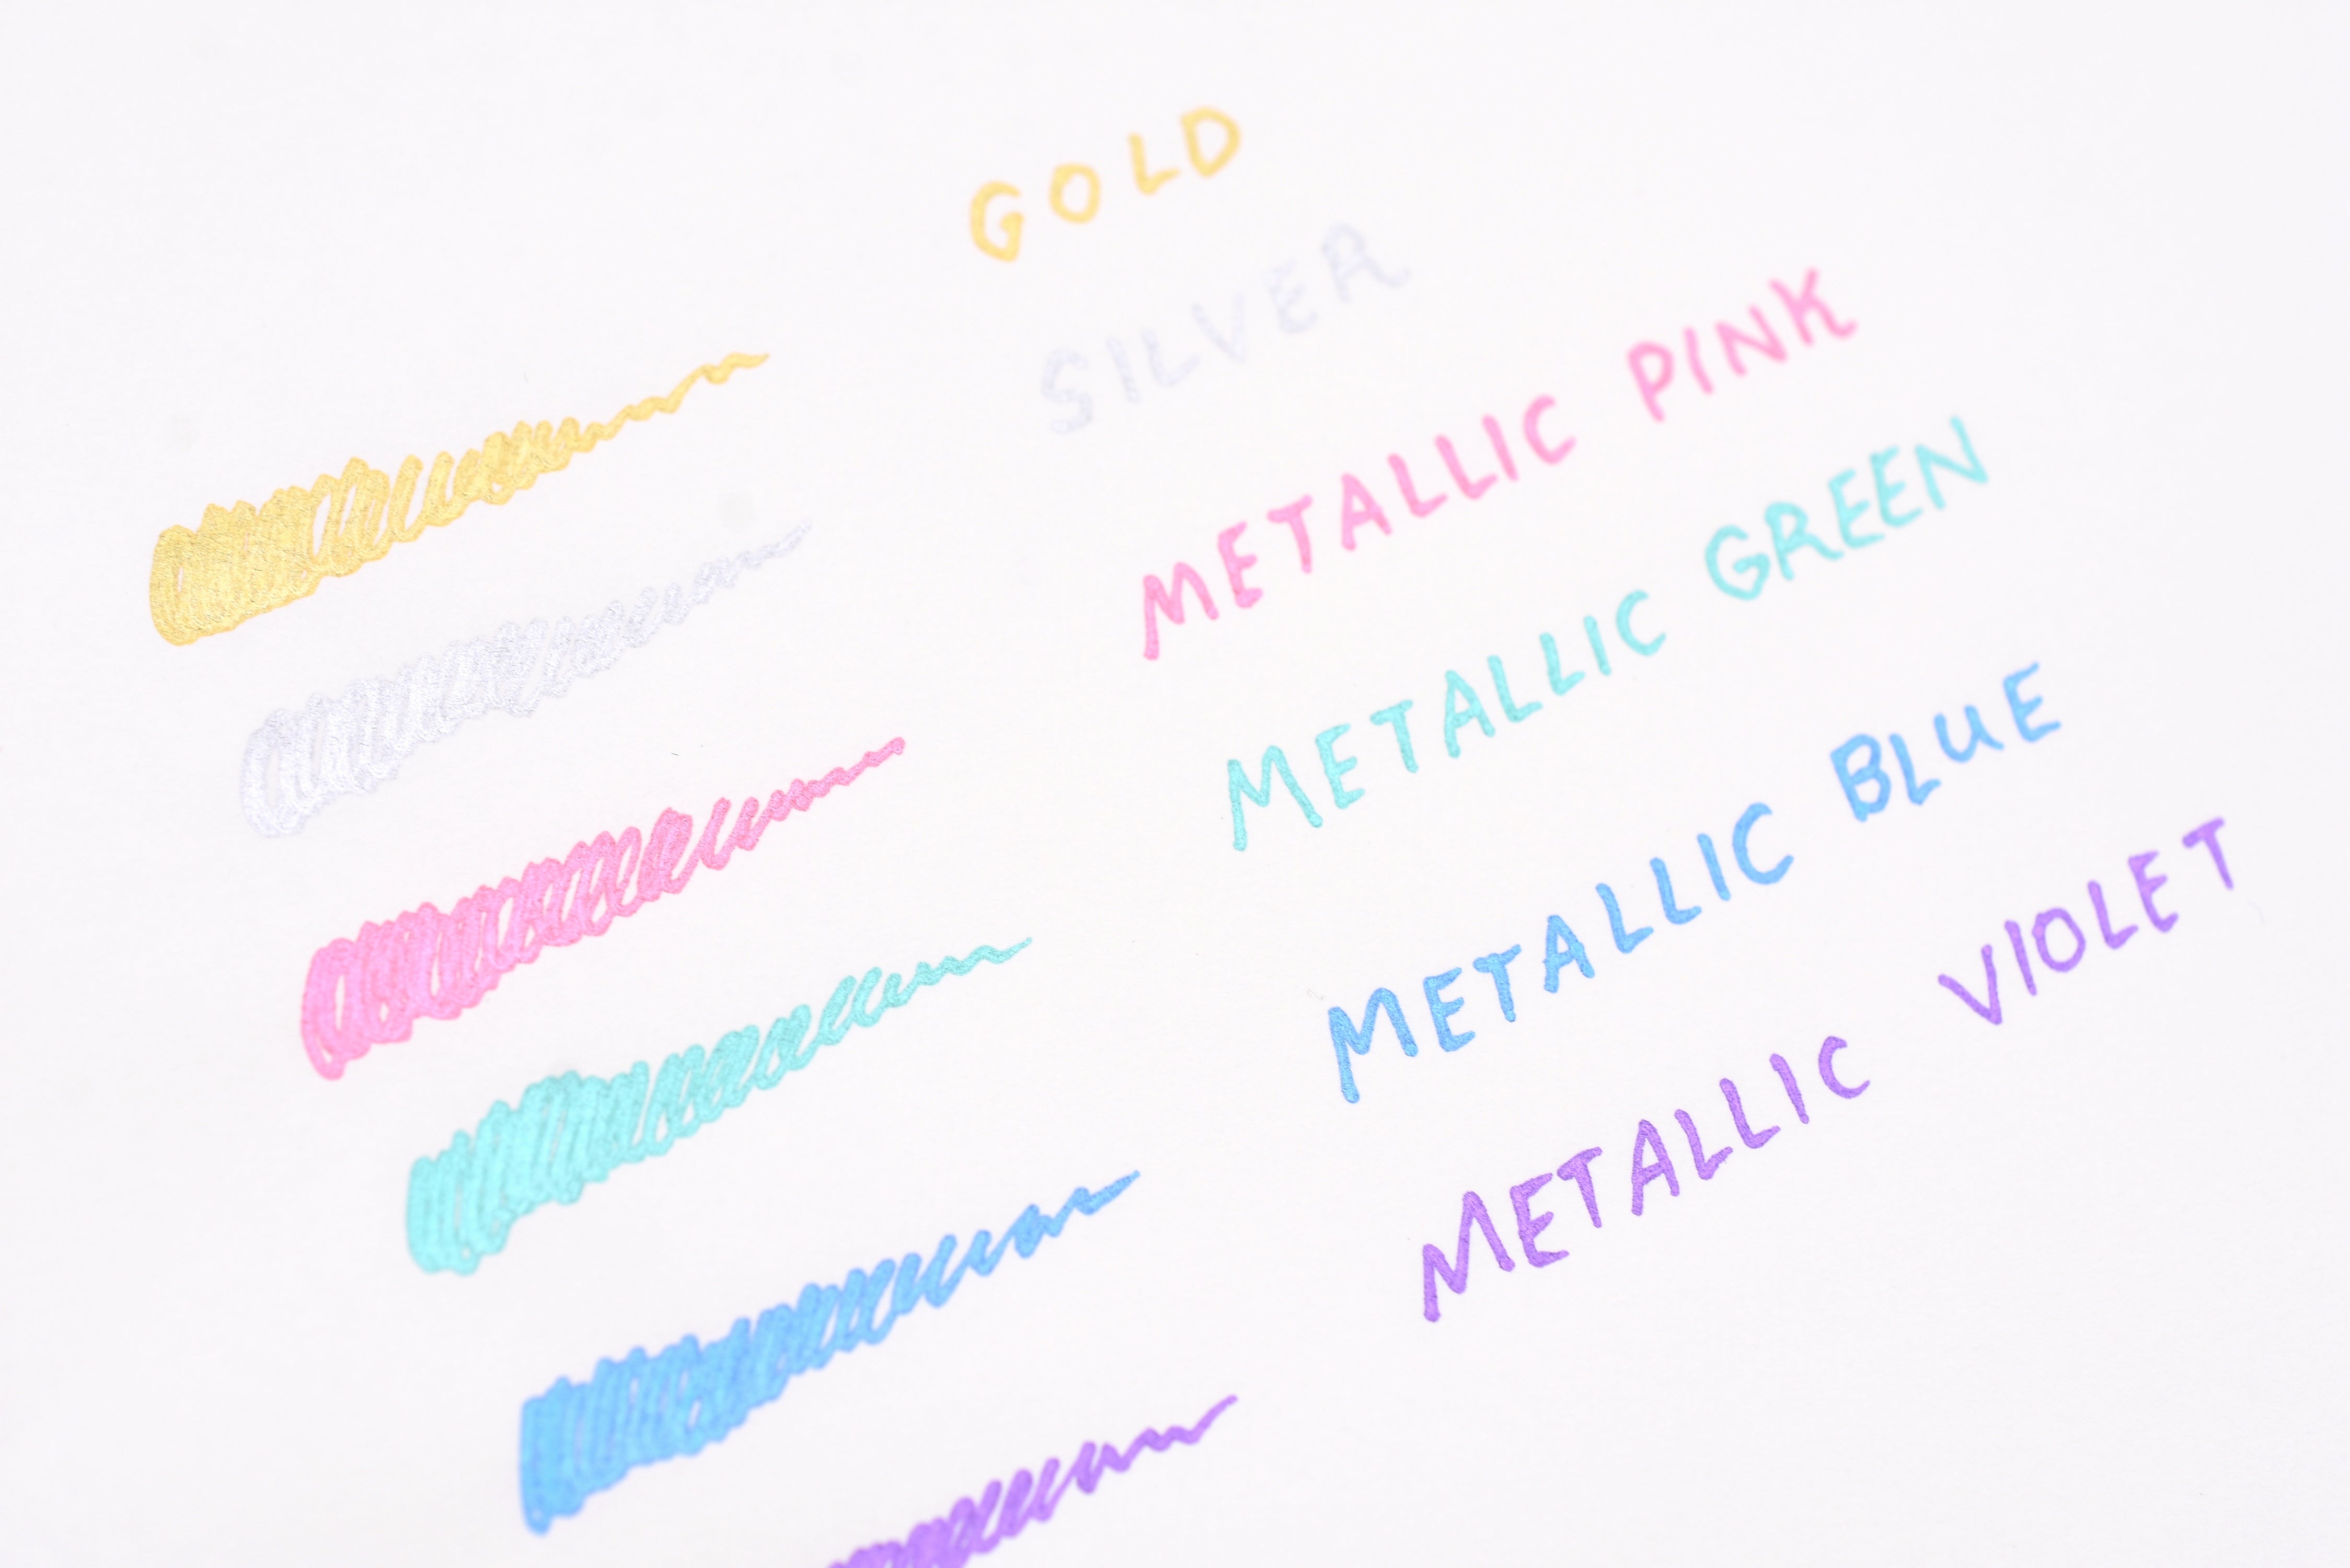 GOLD
SILVER
METALLIC PINK
METALLIC GREEN
METALLIC BLUE
METALLIC VIOLET